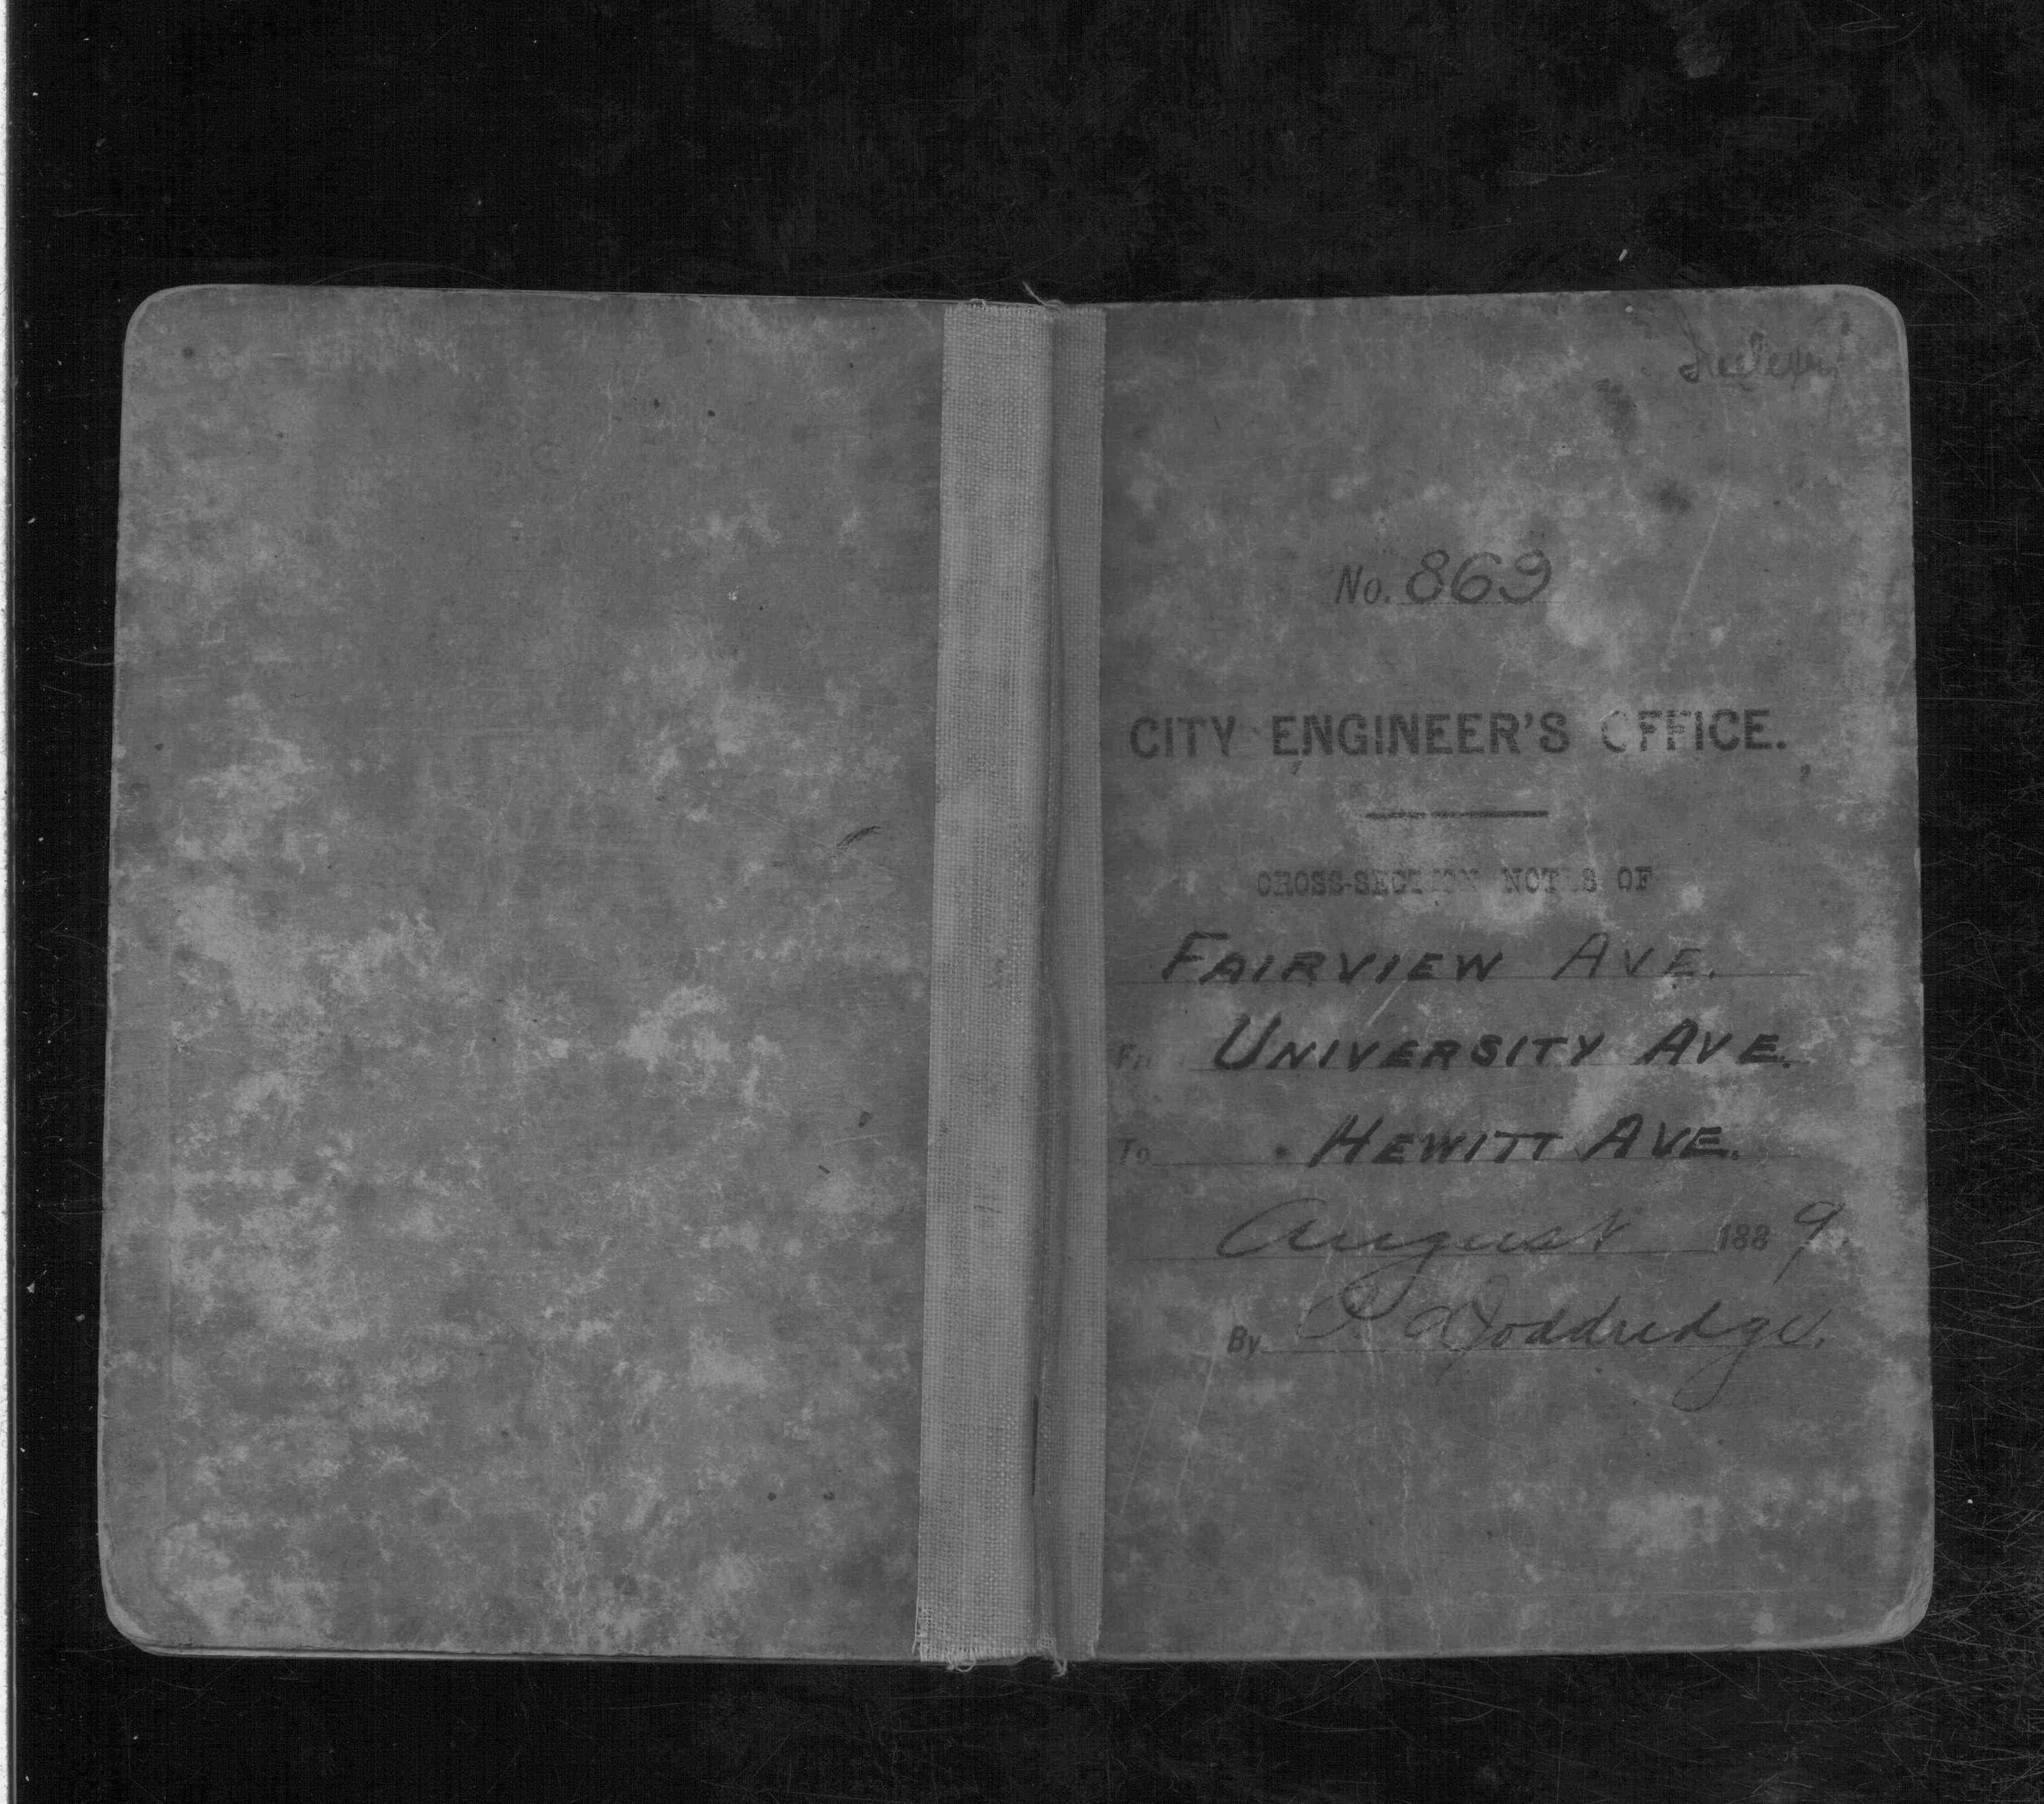 Indexed
No. 869
CITY ENGINEER'S OFFICE.
CROSS-SECTION NOTES OF
FAIRVIEW AVE.
From UNIVERSITY AVE.
To HEWITT AVE.
August 1889.
By Doddridge.